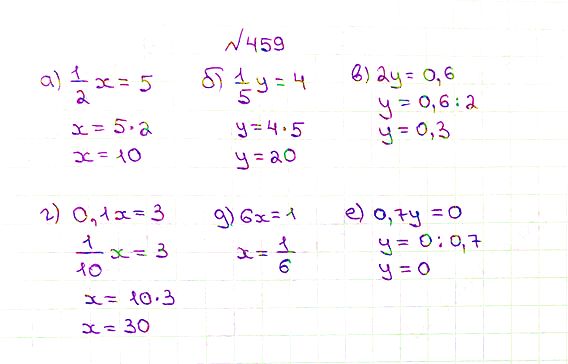 №459
а) 1/2 x = 5
x = 5·2
x = 10
б) 1/5 y = 4
y = 4·5
y = 20
в) 2y = 0,6
y = 0,6 : 2
y = 0,3
г) 0,1x = 3
1/10 x = 3
x = 10·3
x = 30
д) 6x = 1
x = 1/6
е) 0,7y = 0
y = 0 : 0,7
y = 0